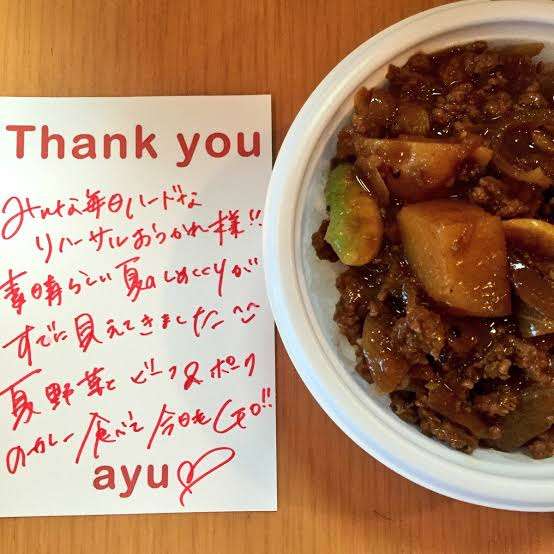 Thank you
みんな毎日ハードな
リハーサルおつかれ様!!
素晴らしい夏のしめくくりが
すでに見えてきました^^
夏野菜とビーフ&ポーク
のカレー食べて今日もGO!!
ayu♡